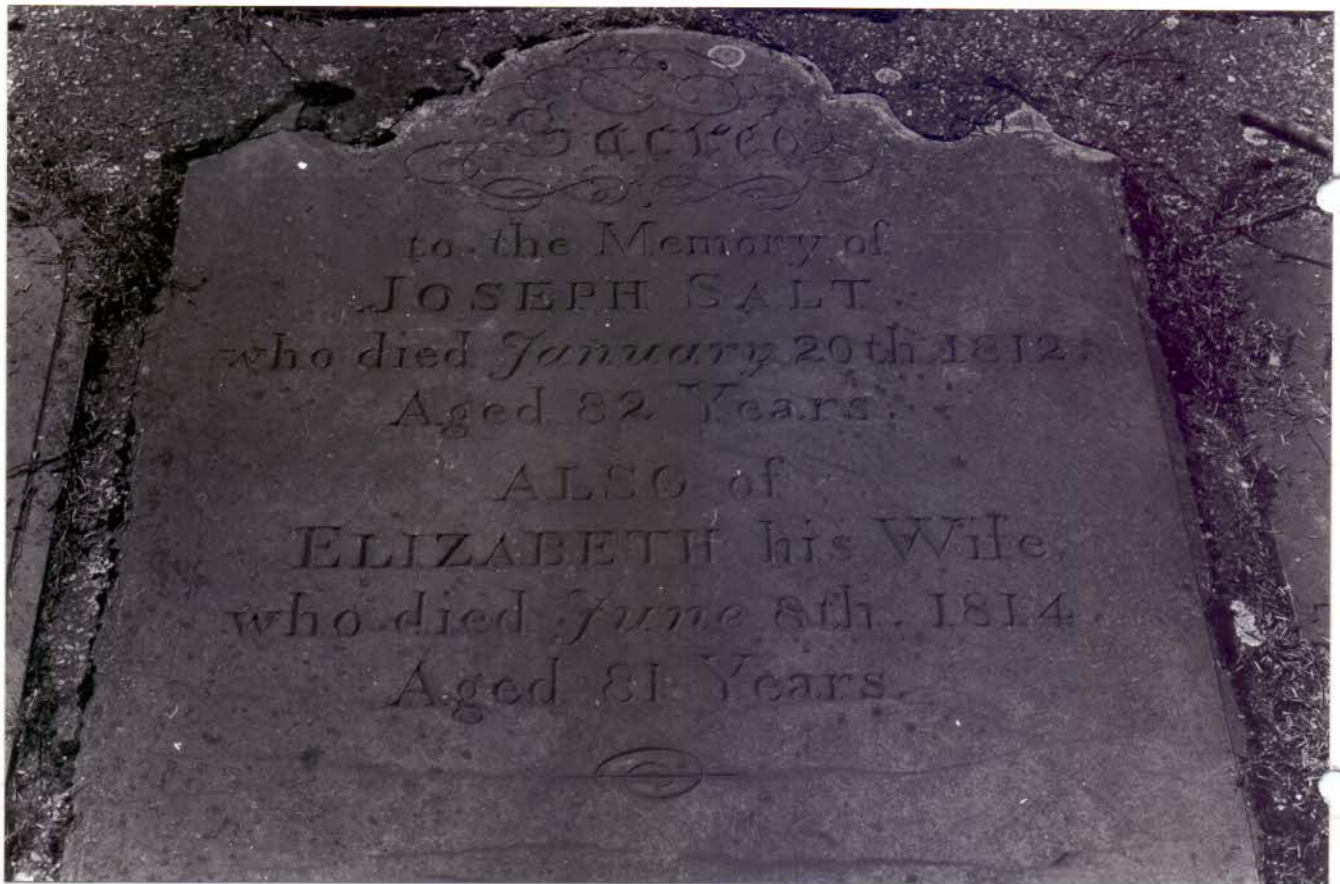 Sacred
to the Memory of
JOSEPH SALT
who died January 20th 1812
Aged 82 Years.
ALSO of
ELIZABETH his Wife,
who died June 8th. 1814
Aged 81 Years.